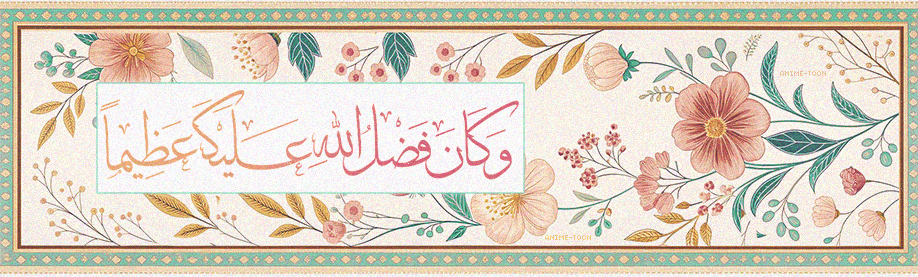 وَكَانَ فَضْلُ اللهِ عَلَيْكَ عَظِيمًا
ANIME-TOON
ANIME-TOON